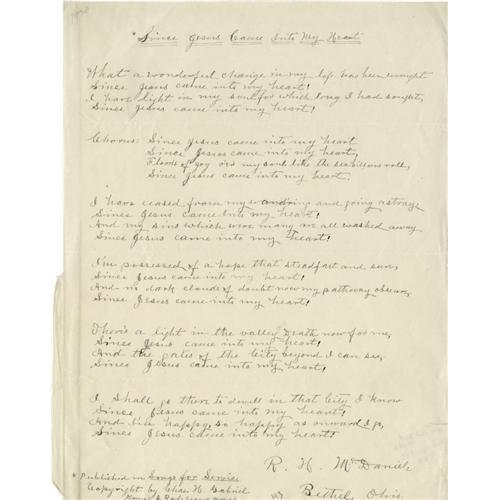 "Since Jesus Came Into My Heart
What a wonderful change in my life has been wrought
Since Jesus came into my heart!
I have light in my soul for which long I had sought,
Since Jesus came into my heart!
Chorus: Since Jesus came into my heart
Since Jesus came into my heart,
Floods of joy o'er my soul like the sea billows roll,
Since Jesus came into my heart.
I have ceased from my wandring and going astray
Since Jesus came into my heart!
And my sins which were many are all washed away
Since Jesus came into my heart!
I'm possessed of a hope that steadfast and sure,
Since Jesus came into my heart!
And no dark clouds of doubt now my pathway obscure,
Since Jesus came into my heart!
There's a light in the valley Death now for me,
Since Jesus came into my heart!
And the gates of the City beyond I can see,
Since Jesus came into my heart!
I shall go there to dwell in that City I know
Since Jesus came into my heart!
And I'm happy, so happy as onward I go,
Since Jesus came into my heart!
R. H. McDaniel
* Published in Songs for Service
Copyright by Chas H. Gabriel
Homer Rodeheaver owner
Bethel, Ohio